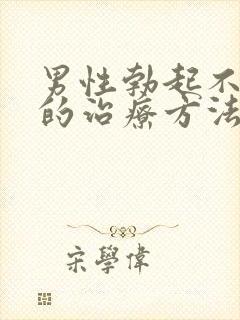 男性勃起不
的治療方法
宋學偉